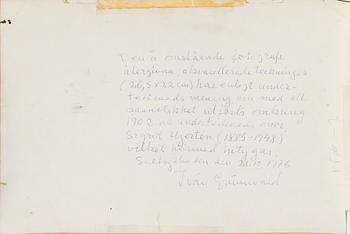 Den å omstående fotografi
återgivna akvarellerade teckningen
(26,5 x 22 cm) har enligt under-
tecknads mening och med all
sannolikhet utförts omkring
1902 av undertecknads mor
Sigrid Hjertén (1885-1948)
vilket härmed intygas.
Saltsjöbaden den 1976
Iván Grünewald